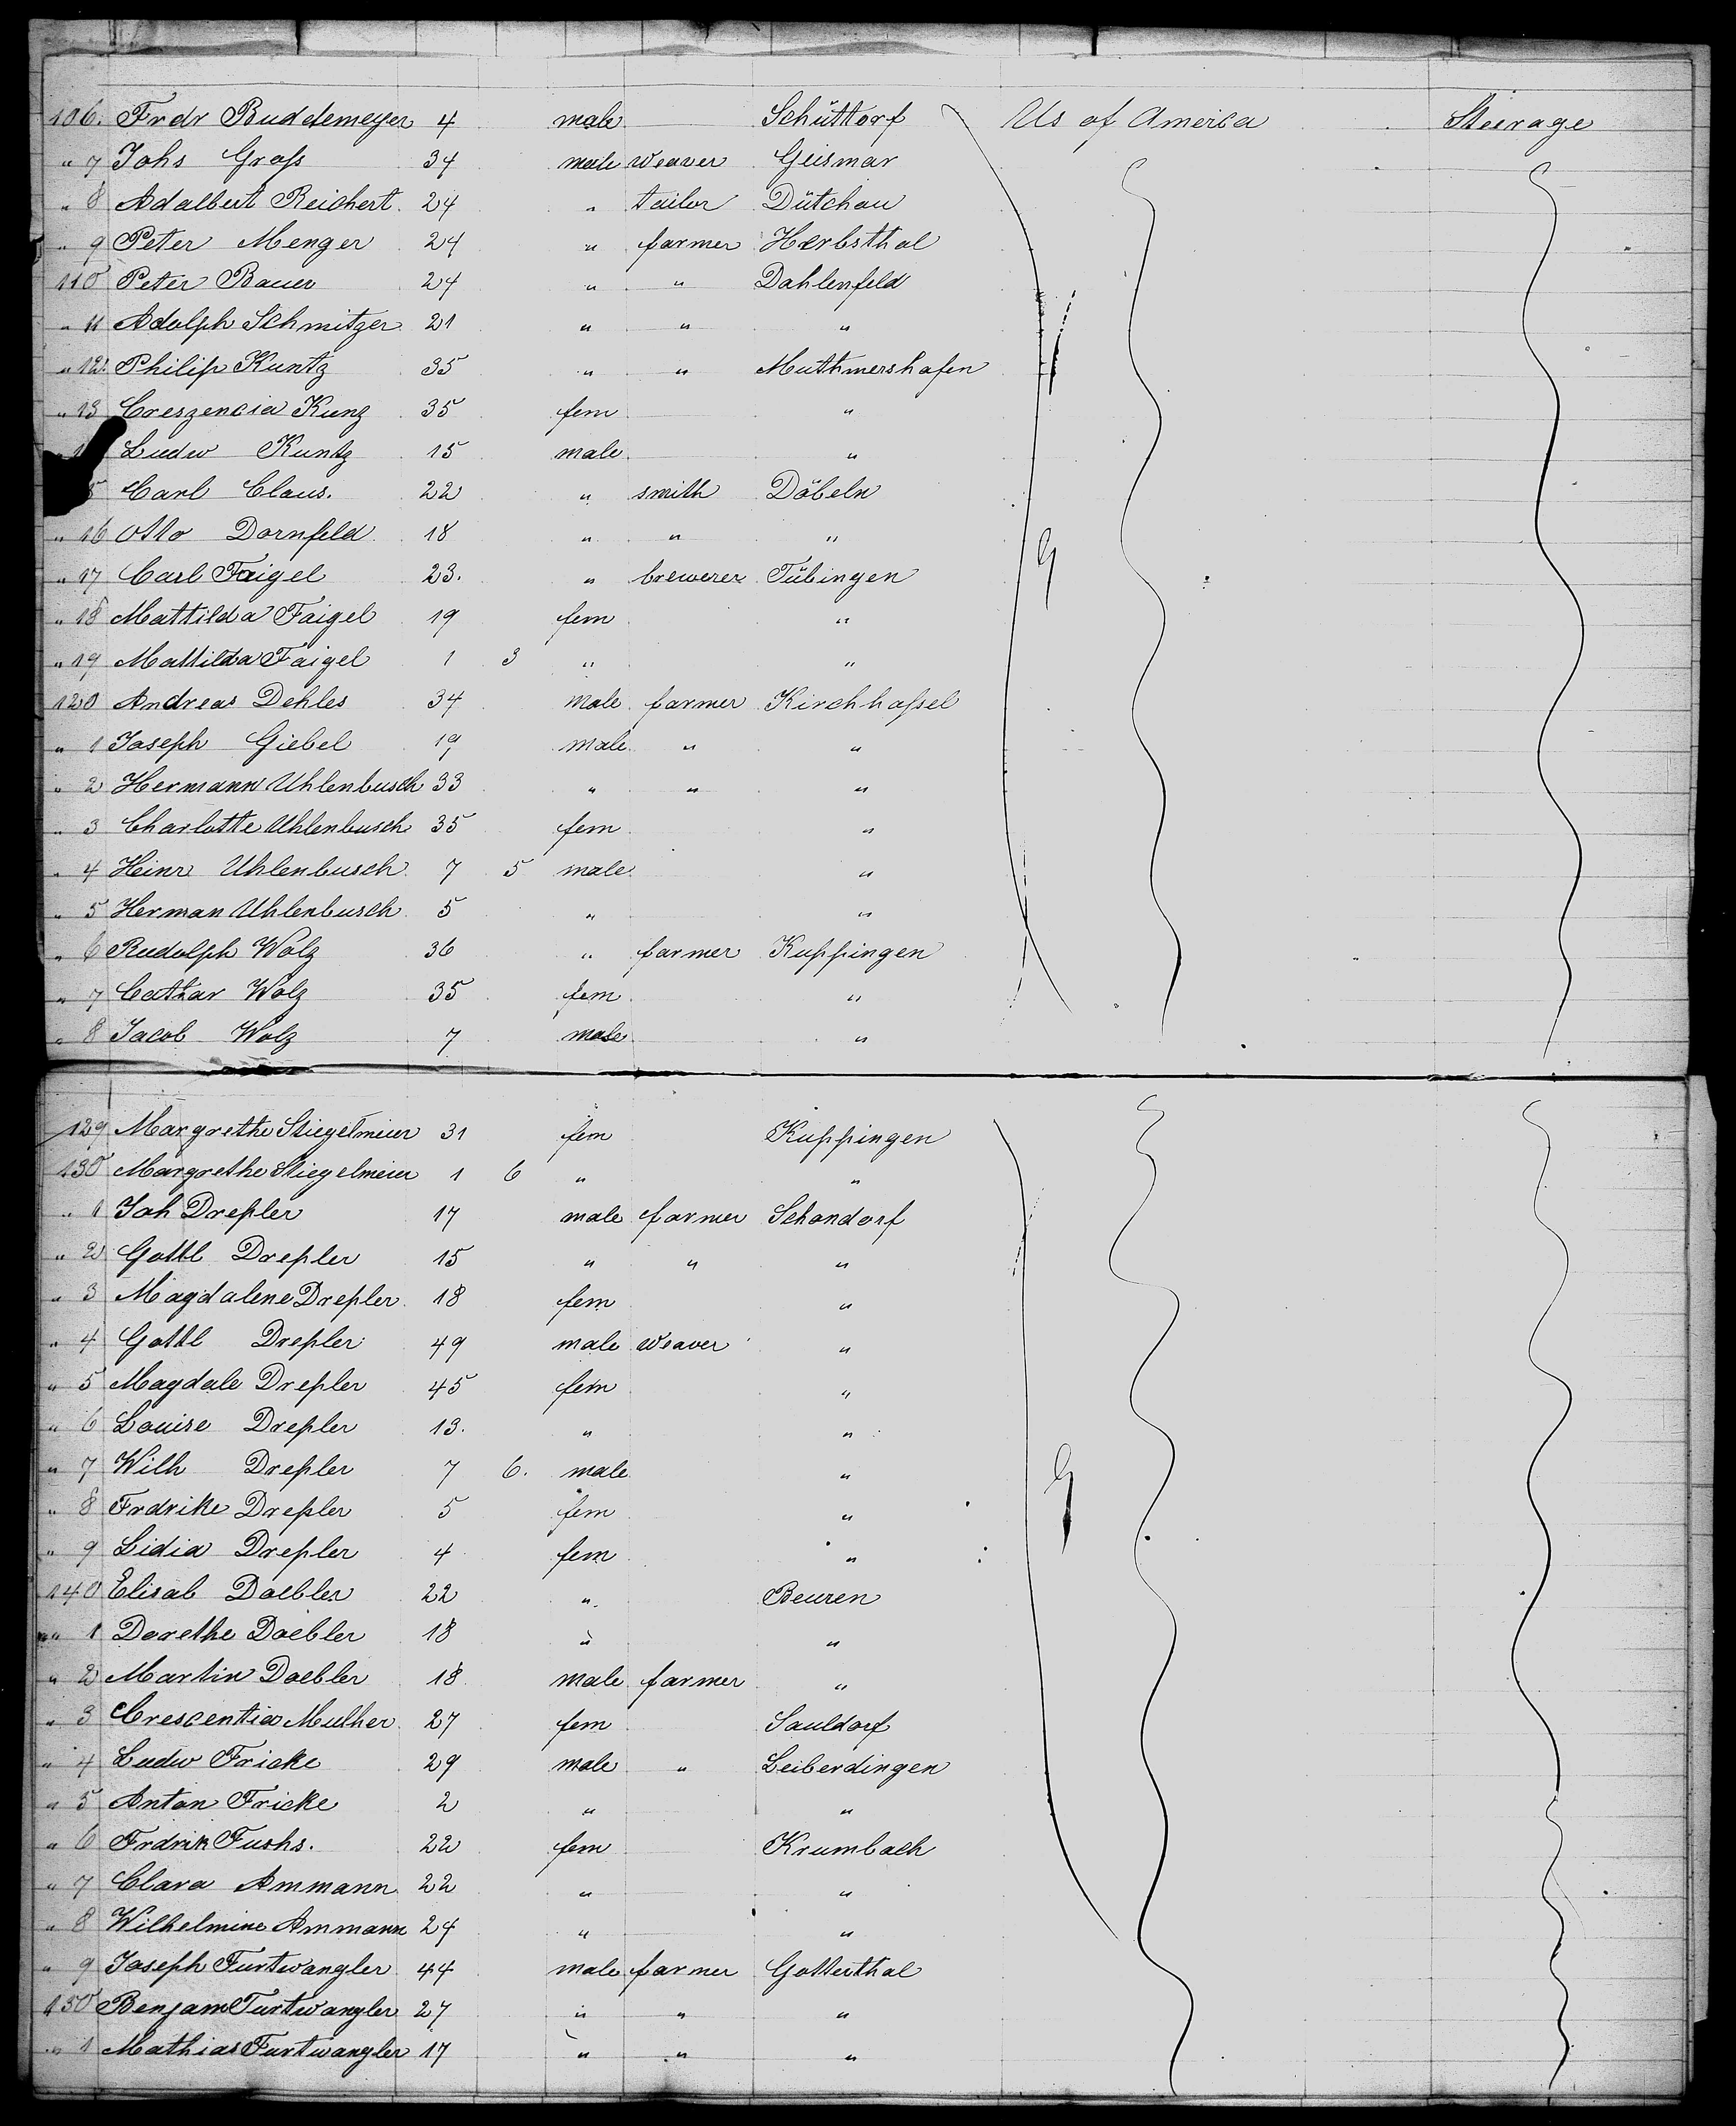 106. Frdr Buddemeyer 4 male Schüttorf Us of America Steerage
" 7 Johs Groſs 34 male weaver Geismar
" 8 Adalbert Reichert 24 " tailor Dütchau
" 9 Peter Menger 24 " farmer Herbsthal
110 Peter Bauer 24 " " Dahlenfeld
" 11 Adolph Schmitzer 21 " " "
" 12. Philip Kuntz 35 " " Muthmershafen
" 13 Creszencia Kunz 35 fem "
Ludw Kuntz 15 male "
5 Carl Claus. 22 " smith Döbeln
" 16 Otto Dornfeld 18 " " "
" 17 Carl Faigel 23. " brewerer Tübingen
" 18 Mattilda Faigel 19 fem "
" 19 Mattilda Faigel 1 3 " "
120 Andreas Dehles 34 male farmer Kirchhaſsel
" 1 Joseph Giebel 19 male " "
" 2 Hermann Uhlenbusch 33 " " "
" 3 Charlotte Uhlenbusch 35 fem "
" 4 Heinr Uhlenbusch 7 5 male "
" 5 Herman Uhlenbusch 5 " "
" 6 Rudolph Wolz 36 " farmer Kuppingen
" 7 Cathar Wolz 35 fem "
" 8 Jacob Wolz 7 male "
129 Margrethe Stiegelmeier 31 fem Kuppingen
130 Margrethe Stiegelmeier 1 6 " "
" 1 Joh Dreſsler 17 male farmer Schondorf
" 2 Gottl Dreſsler 15 " " "
" 3 Magdalene Dreſsler 18 fem "
" 4 Gottl Dreſsler 49 male weaver "
" 5 Magdale Dreſsler 45 fem "
" 6 Louise Dreſsler 13. " "
" 7 Wilh Dreſsler 7 6. male "
" 8 Frdrike Dreſsler 5 fem "
" 9 Lidia Dreſsler 4 fem "
140 Elisab Daebler 22 " Beuren
" 1 Dorethe Daebler 18 " "
" 2 Martin Daebler 18 male farmer "
" 3 Crescentia Mulher 27 fem Sauldorf
" 4 Ludw Fricke 29 male " Leiberdingen
" 5 Anton Fricke 2 " "
" 6 Frdrik Fuchs. 22 fem Krumbach
" 7 Clara Ammann 22 " "
" 8 Wilhelmine Ammann 24 " "
" 9 Joseph Furtwangler 44 male farmer Gotterthal
150 Benjam Furtwangler 27 " " "
" 1 Mathias Furtwangler 17 " " "